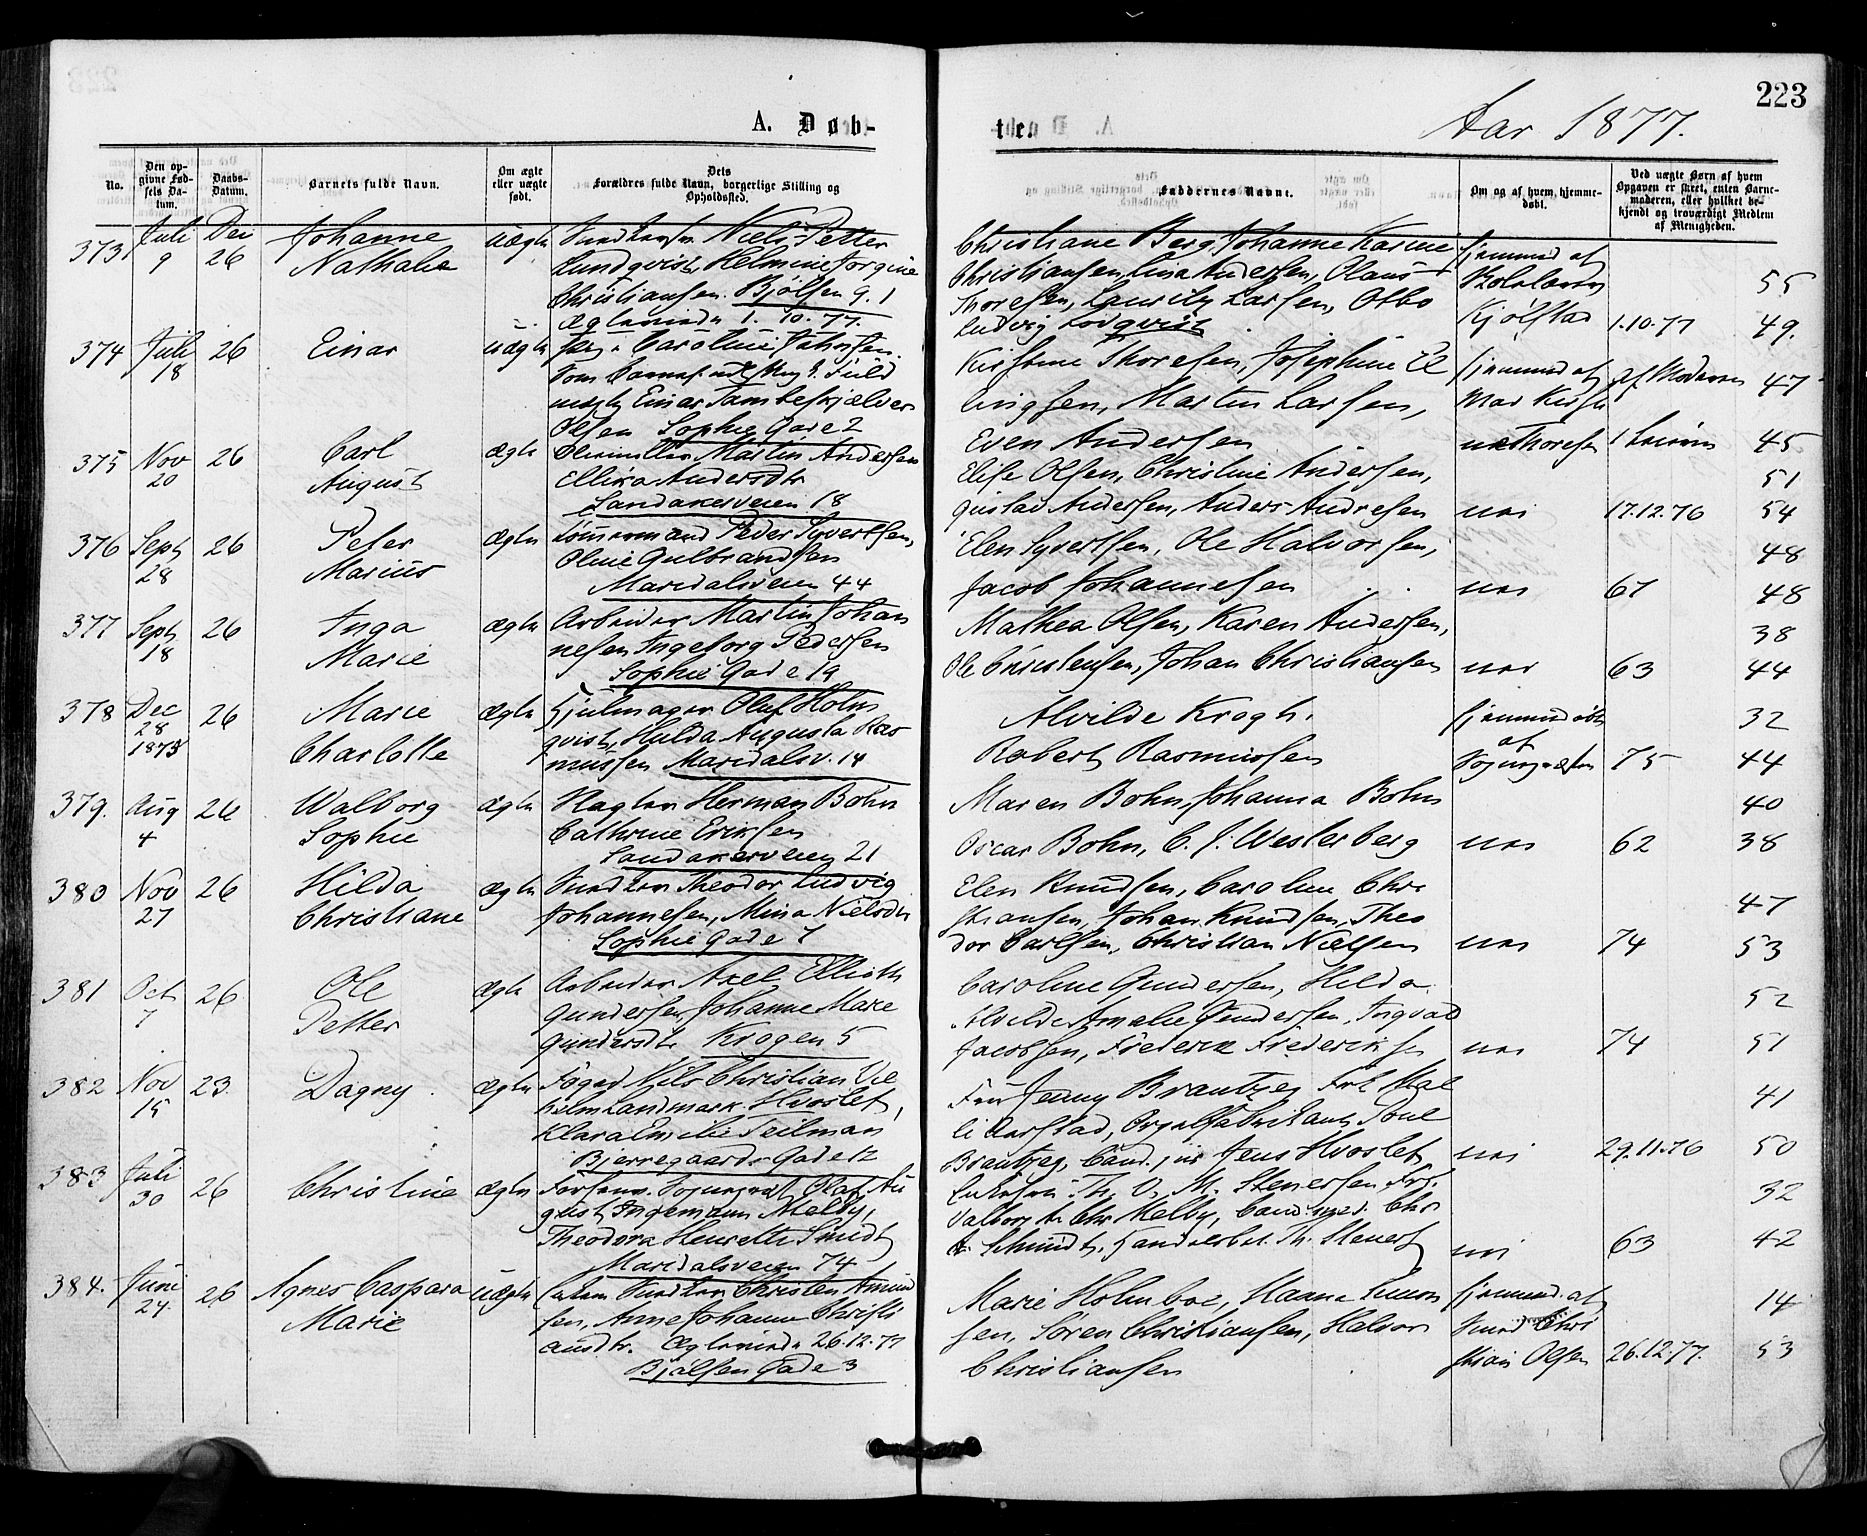 223
A. Døb-
ten
Aar 1877.
No.
Den opgivne Fødsels Datum.
Daabs-Datum.
Barnets fulde Navn.
Om ægte eller uægte født.
Dets Forældres fulde Navn, borgerlige Stilling og Opholdssted.
Faddernes Navne.
Om og af hvem hjemmedøbt.
Ved uægte Børn af hvem Opgaven er skeet, enten Barnemoderen, eller hvilket bekjendt og troværdigt Medlem af Menigheden.
373 Juli Dec Johanne uægte Niels Petter
9 26 Nathalie Lundqvist, Helmine Jorgine
Christiansen. Bjølsen G. 1
Ægteviede 1. 10. 77.
Christiane Berg, Johanne Karine hjemmed. af
Christiansen, Lina Andersen, Olaus 55
Thoresen, Lauritz Larsen, Otbo Kjølstad
Ludvig Lodqvist 1.10.77 49.
374 Juli 26 Einar uægte Pige Caroline Johnsen.
18 Som Barnef. udl. Ung. Fuld
mægtig Einar Tambeskjelver
Olsen Sophie Gade 2
Kirstine Thoresen, Josephine El hjemmed af af Moderen 47
lingsen, Martin Larsen, Mad Kirsti
Even Andersen ne Thoresen 45
375 Nov 26 Carl ægte Martin Andersen
20 August Ellika Andersdtr
Sandakerveien 18
Elise Olsen, Christine Andersen, 51
Gustav Andersen, Anders Andresen nei 17.12.76 54
376 Sept 26 Peter ægte Tømmermand Peder Syvertsen,
28 Marius Oline Gulbrandsen
Maridalsveien 44
Elen Syvertsen, Ole Halvorsen, 48
Jacob Johannesen nei 67 48
377 Sept 26 Inga ægte Arbeider Martin Johan
18 Marie nesen Ingeborg Pedersen
Sophie Gade 19
Mathea Olsen, Karen Andersen, 38
Ole Christensen, Johan Christiansen nei 63 44
378 Dec 26 Marie ægte Hjulmager Oluf Holm
28
1873 Charlotte qvist, Hulda Augusta Ras
mussen Maridalsv. 14
Alvilde Krogh. hjemmedøbt 32
af
Robert Rasmussen Sognepræsten 75 44
379. Aug 26 Walborg ægte Herman Bohn
4 Sophie Cathrine Eriksen
Sandakerveien 21
Maren Bohn, Johanna Bohn 40
Oscar Bohn, C. J. Westerberg nei 62 38
380 Nov 26 Hilda ægte Theodor Ludvig
27 Christiane Johannesen, Mina Nielsdtr
Sophie Gade 7
Elen Knudsen, Caroline Chri
stiansen, Johan Knudsen, Theo 47
dor Carlsen, Christian Nielsen nei 74 53
381 Oct 26 Ole ægte Arbeider Axel Ellioth
7 Petter Gundersen, Johanne Marie
Gundersdtr Krogen 5
Caroline Gundersen, Hilda 52
Alvilde Amalie Gundersen, Ingvald
Jacobsen, Frederik Frederiksen nei 74 51
382 Nov 23. Dagny ægte Foged Nils Christian Vil
15 helm Landmark Hvoslef,
Klara Emilie Teilman
Bjerregaards Gade 12
Fru Jenny Brantzeg Frk Mal
li Aarstad, Orgelfabrikant Poul 41
Brantzeg, Cand. jur Jens Hvoslef nei 29.11.76 50
383 Juli 26 Christine ægte Olaf Au
30 gust Ingemann Melby,
Theodora Henriette Smidt
Maridalsveien 74
Th. V. M. Stenersen Frk. 32
Valborg Chr Melby, Cand. med. Chr
Schmidt, Th. Stenersen nei 63 42
384. Juni 26 Agnes Caspara uægte Christen Amund
24. Marie sen, Anne Johanne Christi
ansdtr. Ægteviede 26.12.77
Bjølsen Gade 3
Marie Holmboe, Hanna Simon hjemmed. af 14
sen, Søren Christiansen, Halvor Smed Chri
Christiansen stian Olsen 26.12.77. 53